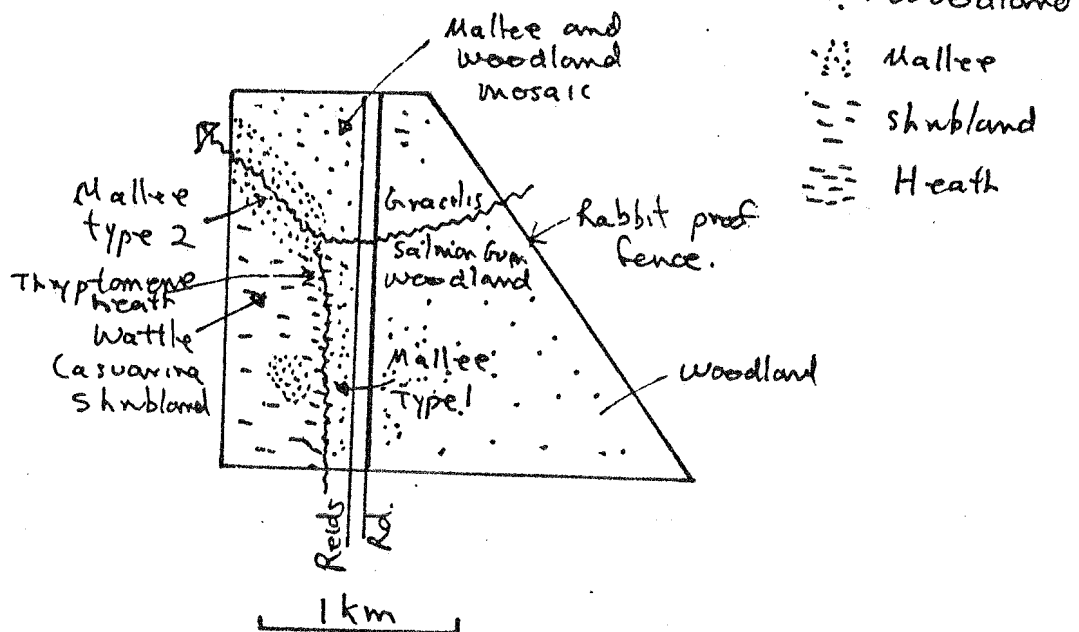 Woodland
Mallee
Shrubland
Heath
Mallee and
woodland
mosaic
Mallee
type 2
Gracilis
Salmon Gum
woodland
Rabbit proof
fence.
Thryptomene
heath
Wattle
Casuarina
Shrubland
Mallee
Type 1
Woodland
Reids
Rd.
1 km